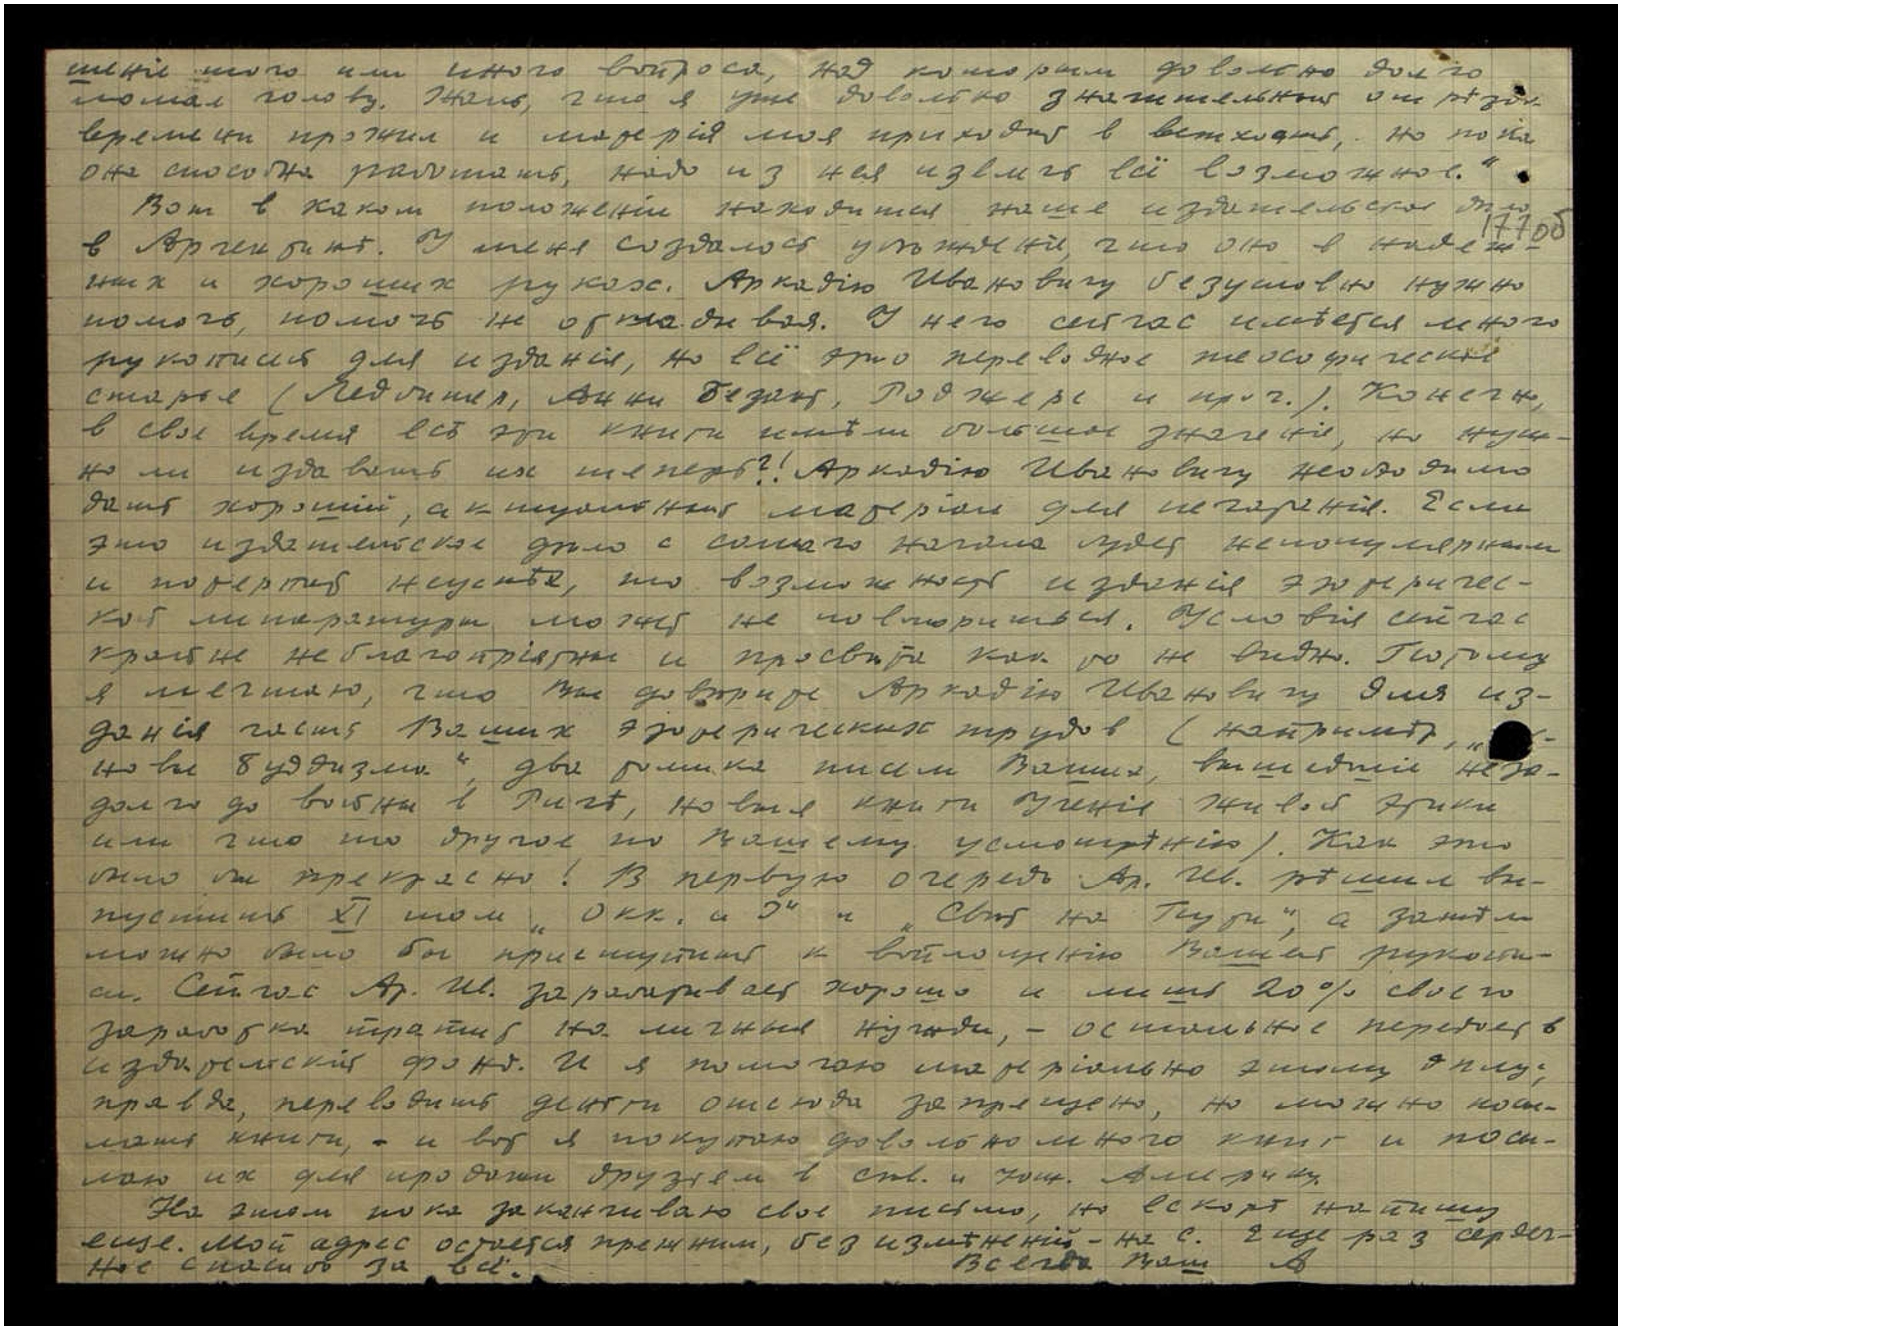 шеніе того или иного вопроса, над которым довольно долго
ломал голову. Жаль, что я уже довольно значительный отрѣзок
времени прожил и матерія моя приходит в ветхость, но пока
она способна работать, надо из нея извлечь всё возможное."
Вот в каком положеніи находится наше издательское дѣло
177об
в Аргентинѣ. У меня создалось убѣжденіе, что оно в надеж-
ных и хороших руках. Аркадію Ивановичу безусловно нужно
помочь, помочь не откладывая. У него сейчас имѣется много
рукописей для изданія, но всё это переводное теософическое
старье (Ледбитер, Анни Безант, Роджерс и проч.). Конечно,
в свое время всѣ эти книги имѣли большое значеніе, но нуж-
но ли издавать их теперь?! Аркадію Ивановичу необходимо
дать хорошій, актуальный матеріал для печатанія. Если
это издательское дѣло с самого начала будет непопулярным
и потерпит неуспѣх, то возможность изданія эзотеричес-
кой литературы может не повториться. Условія сейчас
крайне неблагопріятны и просвѣта как то не видно. Потому
я мечтаю, что Вы довѣрите Аркадію Ивановичу для из-
данія часть Ваших эзотерических трудов (напримѣр, „
новы буддизма", два томика писем Ваших, вышедшіе неза-
долго до войны в Ригѣ, новыя книги Ученіе Живой Этики
или что то другое по Вашему усмотрѣнію). Как это
было бы прекрасно! В первую очередь Ар. Ив. рѣшил вы-
пустить XI том „Окк. и Й" и „Свѣт на Пути", а затѣм
можно было бы приступить к воплощенію Вашей рукопи-
си. Сейчас Ар. Ив. зарабатывает хорошо и лишь 20% своего
заработка тратит на личныя нужды, - остальное передает в
издательскій фонд. И я помогаю матеріально этому дѣлу;
правда, переводить деньги отсюда запрещено, но можно посы-
лать книги, - и вот я покупаю довольно много книг и посы-
лаю их для продажи друзьям в сѣв. и юж. Америку.
На этом пока заканчиваю свое письмо, но вскорѣ напишу
еще. Мой адрес остается прежним, без измѣненій - на С. Еще раз сердеч-
ное спасибо за всё. Всегда Ваш А